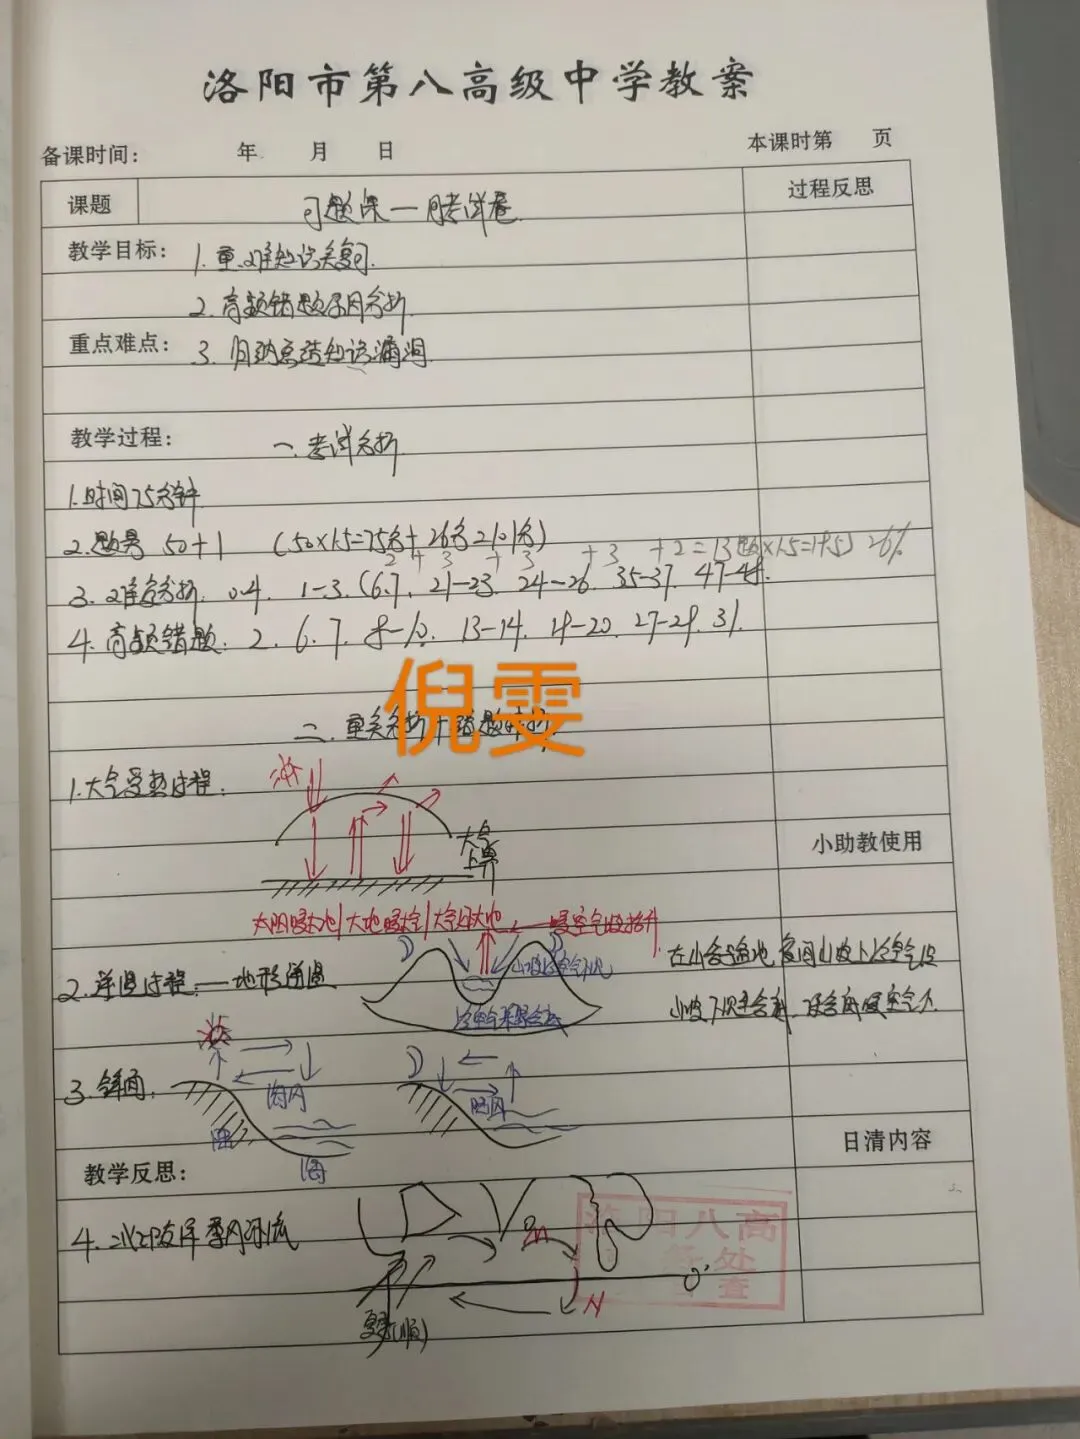 洛阳市第八高级中学教案
备课时间： 年 月 日 本课时第 页
课题 习题课—月考试卷 过程反思
教学目标： 1. 重、难知识点复习.
2. 高频错题原因分析.
重点难点： 3. 归纳总结知识漏洞.
教学过程： 一. 考试分析.
1. 时间75分钟
2. 题号 50+1 (50×1.5=75分+26分
2 + 3 + 3 + 3 + 2 = 13题×1.5=19.5) 26%
3. 难度分析. 0.4. 1-3. (6.7. 21-23. 24-26. 35-37. 47-48.
4. 高频错题: 2. 6. 7. 8-10. 13-14. 19-20. 27-29. 31.
倪雯
二. 重点分析+错题
1. 大气受热过程:
大气上界
小助教使用
太阳暖大地|大地暖大气|大气还大地
暖空气被抬升
2. 逆温过程: 地形逆温
冷空气
在小盆地 夜间山坡上冷空气沿
山坡下沉至谷底, 谷底暖空气
3. 锋面:
海风
陆风
陆
海
日清内容
教学反思:
4. 北印度洋季风环流
夏季(顺)
0°
洛阳八高
处
查